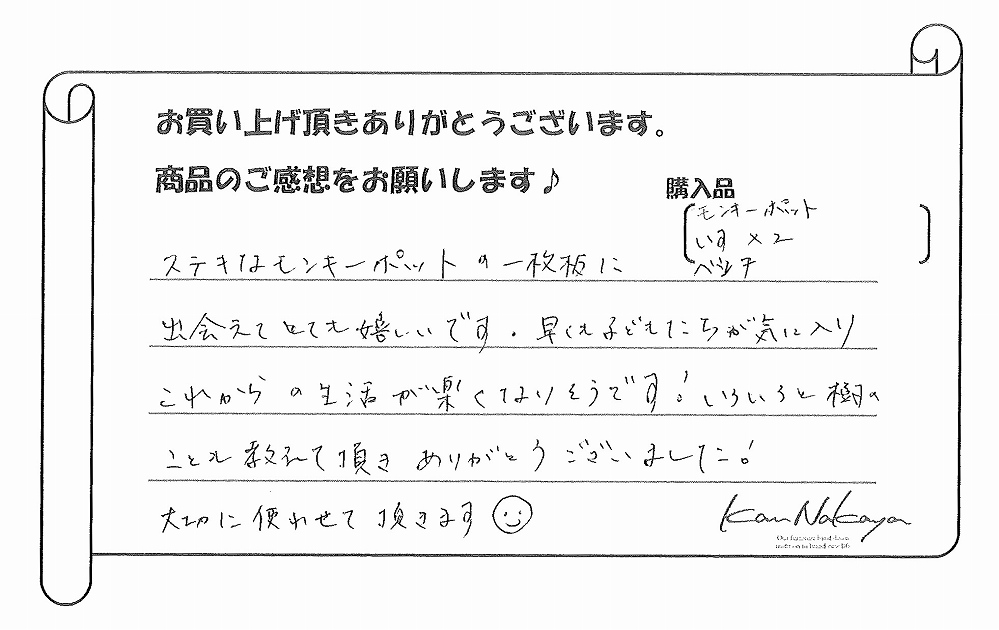 お買い上げ頂きありがとうございます。
商品のご感想をお願いします♪
購入品
モンキーポット
いす×2
ベンチ
ステキなモンキーポットの一枚板に
出会えてとても嬉しいです。早くも子どもたちが気に入り
これからの生活が楽しくなりそうです!いろいろと樹の
ことも教えて頂きありがとうございました!
大切に使わせて頂きます
Kan Nakaya